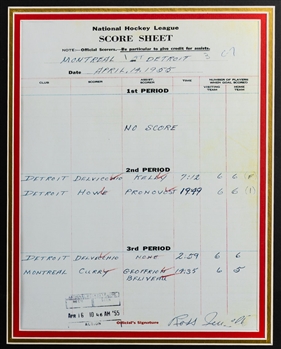 National Hockey League
SCORE SHEET
NOTE—Official Scorers.—Be particular to give credit for assists.
MONTREAL at DETROIT
Date APRIL, 14, 1955
CLUB SCORER ASSIST. SCORER TIME NUMBER OF PLAYERS WHEN GOAL SCORED
VISITING TEAM HOME TEAM
1st PERIOD
NO SCORE
2nd PERIOD
DETROIT DELVECCHIO KELLY 7:12 6 6
DETROIT HOWE PRONOVOST 19:49 6 6
3rd PERIOD
DETROIT DELVECCHIO NONE 2:59 6 6
MONTREAL CURRY GEOFFRION 14:35 6 5
BELIVEAU
APR 16 10 AM '55
Official's Signature